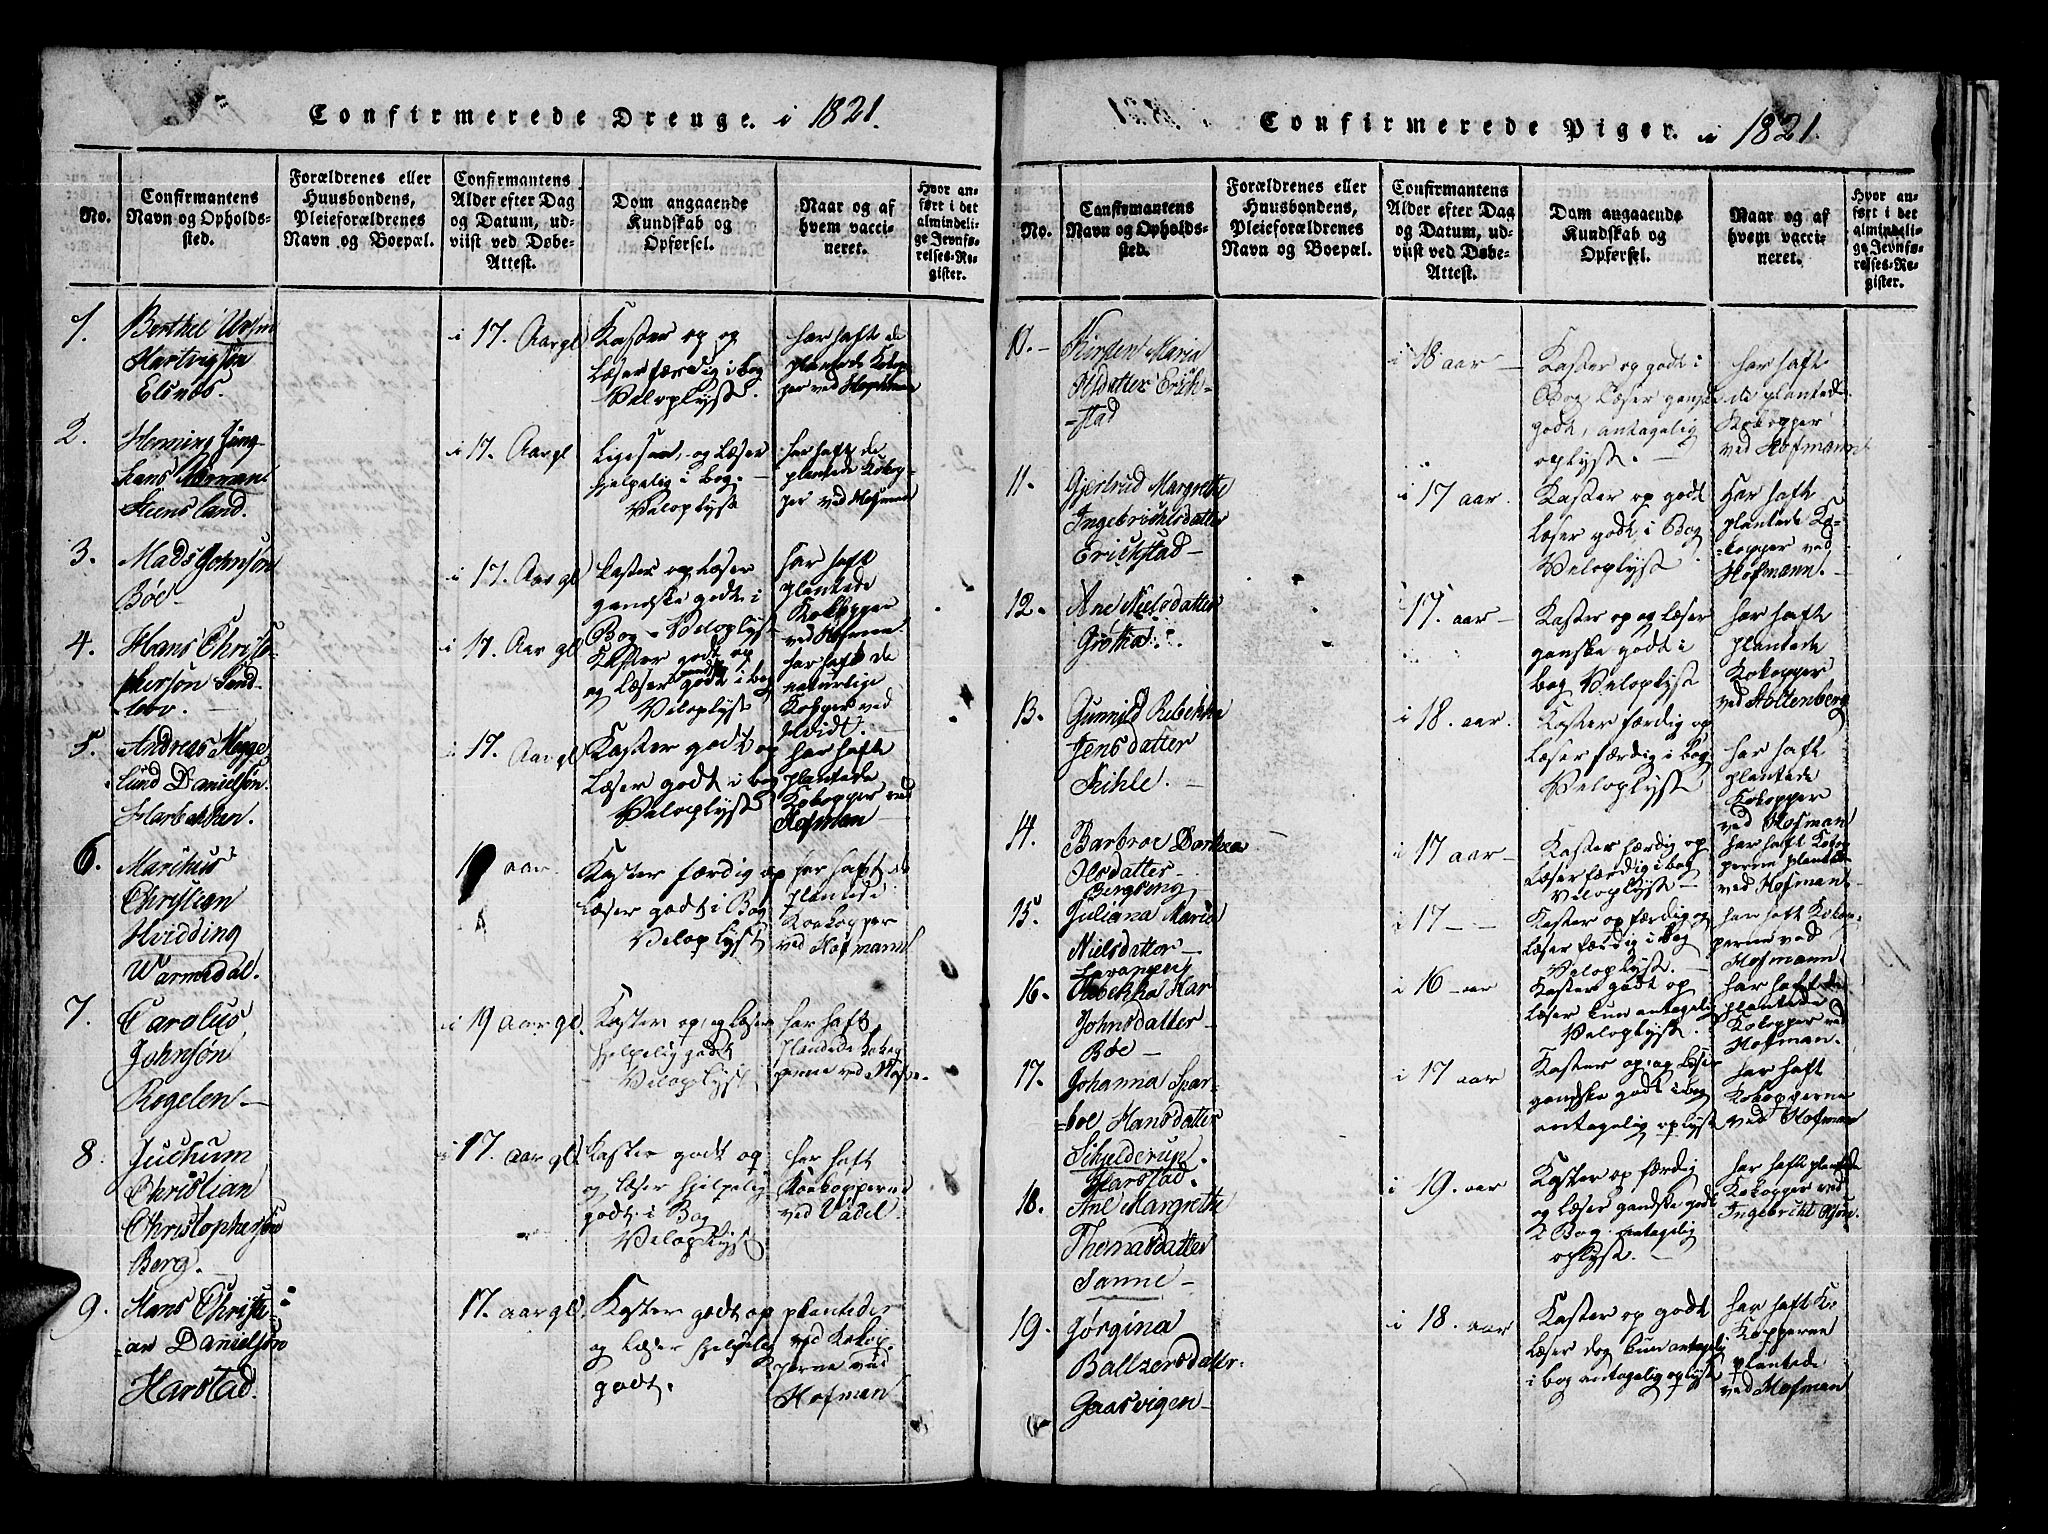 Confirmerede Drenge. i 1821.
No.
Confirmantens
Navn og Opholds-
sted.
Forældrenes eller
Huusbondens,
Pleieforældrenes
Navn og Boepæl.
Confirmantens
Alder efter Dag
og Datum, ud-
viist ved Døbe-
Attest.
Dom angaaende
Kundskab og
Opførsel.
Naar og af
hvem vacci-
neret.
Hvor an-
ført i det
almindeli-
ge Jevnfø-
relses-Re-
gister.
1.
Berthel
Hartvigsøn
Elsnæs.
i 17. Aar gl
Kaster op og
læser færdig i bog
Veloplyst.
har haft de
plantede Kokop-
per ved
2.
Henning Jüng-
hans
Steensland.
i 17. Aar gl
ligesaa, og læser
hjelpelig i bog.
Veloplyst
har haft de
plantede Kokop-
per ved Hofman
3.
Mads Johnsøn
Bøe
i 17. Aar gl
kaster op læser
ganske godt i
Bog - Veloplyst
har haft
plantede
Kokopper
ved Hofman
4.
Hans Christo-
phersøn Sand-
torv.
i 17. Aar gl
Kaster godt op
og læser godt i bog
Veloplyst
har haft de
naturlige
Kokopper ved
Hvidt.
5.
Andreas Hegge
lund Danielsøn.
Harbakken.
i 17. Aar gl
Kaster godt op
læser godt i bog
Veloplyst
har haft
plantede
Kokopper ved
Hofman
6.
Marthus
Christian
Hvidding
Warmedal.
aar.
Kaster færdig op
læser godt i Bog
Veloplyst
har haft de
plantede
Koekopper
ved Hofmann
7.
Carolus
Johnsøn
Rogelen
i 19 Aar gl.
Kaster op, og læser
hjelpelig godt
Veloplyst
har haft
plantede Kokop
perne ved
8.
Juchum
Christian
Christophersøn
Berg.
i 17. aar gl.
kaster godt op
og læser hjelpelig
godt i Bog
Veloplyst
har haft
Koekopperne
ved Vadel
9.
Hans Christi-
an Danielsøn
Harstad.
17. aar gl.
Kaster godt op
og læser hjelpelig
godt.
plantedes
ved Kokop-
perne ved
Hofman
Confirmerede Piger. i 1821.
No.
Confirmantens
Navn og Opholds-
sted.
Forældrenes eller
Huusbondens,
Pleieforældrenes
Navn og Boepæl.
Confirmantens
Alder efter Dag
og Datum, ud-
viist ved Døbe-
Attest.
Dom angaaende
Kundskab og
Opførsel.
Naar og af
hvem vacci-
neret.
Hvor an-
ført i det
almindeli-
ge Jevnfø-
relses-Re-
gister.
10.
Kirsten Maria
Olsdatter Erich-
stad
i 18 aar
Kaster op godt i
Bog læser ganske
godt, antagelig
oplyst.
har haft
de plantede
Kokopper
ved Hofmann
11.
Gjertrud Margrethe
Ingebrichtsdatter
Erichstad
i 17 aar.
Kaster op godt
læser godt i Bog
Veloplyst
Har haft
plantede Ko-
kopper ved
Hofmann.
12.
Ane Nielsdatter
Grøtta.
17. aar
Kaster op og læser
ganske godt i
bog Veloplyst
har haft
plantede
Kokopper
ved Holtenberg
13.
Gunnild Rebekka
Jensdatter
Kihle.
i 18. aar.
Kaster færdig op
læser færdig i bog
Veloplyst
har haft
plantede
Kokopper
ved Hofman
14.
Barbroe Dorthea
Olsdatter
Bergseng
i 17 aar
Kaster færdig op
læser færdig i bog
Veloplyst
har haft Kokop
perne plantede
ved Hofman
15.
Juliana Maria
Nielsdatter
Lavangen
i 17
Kaster op færdig og
læser færdig i Bog
Veloplyst.
har haft Kokop-
perne ved
Hofmann
16.
Rebekka Mar
Johnsdatter
Bøe
i 16 aar
Kaster godt op
læser kun antagelig
Veloplyst.
har haft de
plantede
Kokopper ved
Hofman.
17.
Johanna Spar-
boe Hansdatter
Schjelderup.
Harstad.
i 17 aar
Kaster op, og læser
ganske godt i bog
antagelig oplyst
har haft
Kokopperne
ved Hofman
18.
Ane Margrethe
Thomasdatter
Sanne
i 19. aar
Kaster op færdig
og læser ganske godt
i Bog antagelig
oplyst.
har haft plantede
Kokopper ved
Ingebricht Olsøn.
19.
Jørgina
Baltzersdatter
Gaasvigen
i 18. aar
Kaster op godt
læser dog kun antagelig
i bog antagelig oplyst
har haft Ko-
kopperne
plantede
ved Hofman